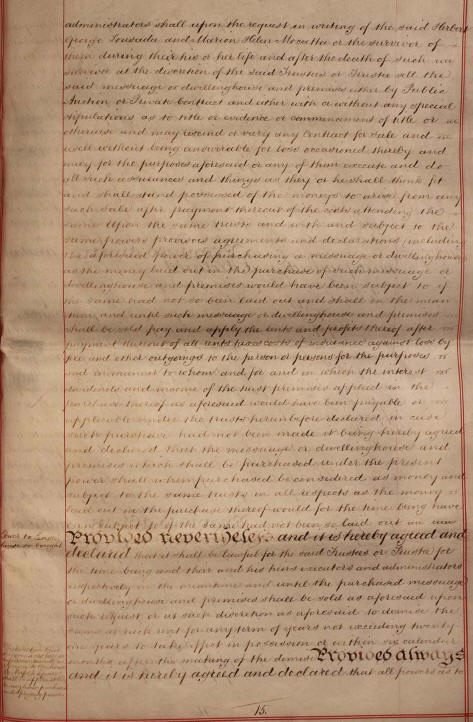 administrators shall upon the request in writing of the said Herbert
George Lousada and Marion Helen Mocatta or the survivor of
them during their his or her life and after the death of such
survivor at the discretion of the said Trustees or Trustee sell the
said messuage or dwellinghouse and premises either by Public
Auction or Private Contract and either with or without any special
stipulations as to title or evidence or commencement of title or
otherwise and may rescind or vary any Contract for sale and
resell without being answerable for loss occasioned thereby and
may for the purposes aforesaid or any of them execute and do
all such assurances and things as they or he shall think fit
and shall stand possessed of the moneys to arise from any
such sale after payment thereout of the costs attending the
same Upon the same trusts and with and subject to the
same powers provisoes agreements and declarations including
the aforesaid power of purchasing a messuage or dwellinghouse
as the money laid out in the purchase of such messuage or
dwellinghouse and premises would have been subject to if
the same had not so been laid out and shall in the mean
time and until such messuage or dwellinghouse and premises
shall be sold pay and apply the rents and profits thereof after
payment thereout of all rents taxes costs of insurance against loss by
fire and other outgoings to the person or persons for the purposes
and in manner to whom and for and in which the interest
dividends and income of the trust premises applied in the
purchase thereof as aforesaid would have been payable or
applicable under the trusts hereinbefore declared in case
such purchase had not been made it being hereby agreed
and declared that the messuage or dwellinghouse and
premises which shall be purchased under the present
power shall when purchased be considered as money and
subject to the same trusts in all respects as the money
laid out in the purchase thereof would for the time being have
been subject to if the same had not been so laid out
Power to Lease
house so bought
Provided nevertheless and it is hereby agreed and
declared that it shall be lawful for the said Trustees or Trustee for
the time being and their and his heirs executors and administrators
respectively in the meantime and until the purchased messuage
or dwellinghouse and premises shall be sold as aforesaid upon
such request or at such discretion as aforesaid to demise the
same at rack rent for any term of years not exceeding twenty
one years to take effect in possession or within six calendar
months after the making of the demise Provided always
and it is hereby agreed and declared that all powers as to
15.